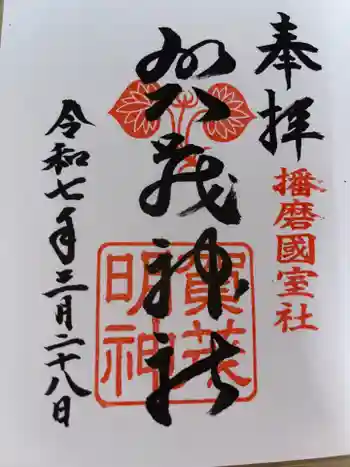 奉拝
播磨國室社
賀茂神社
賀茂
明神
令和七年三月二十八日